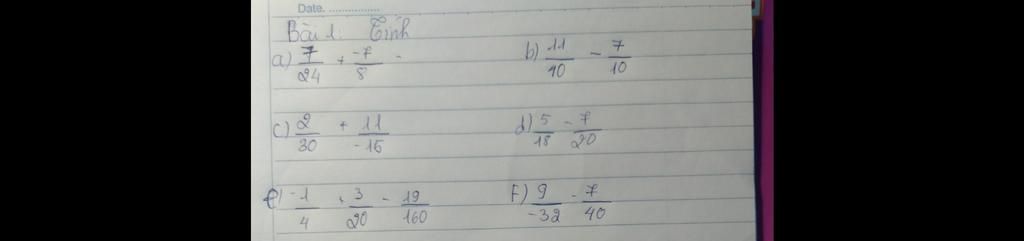 Date. ...............
Bài 1: Tính
a) 7/24 + -7/8 -
b) 11/40 - 7/10
c) 2/30 + 11/-15
d) 5/18 - 7/20
e) -1/4 + 3/20 - 19/160
F) 9/-32 - 7/40